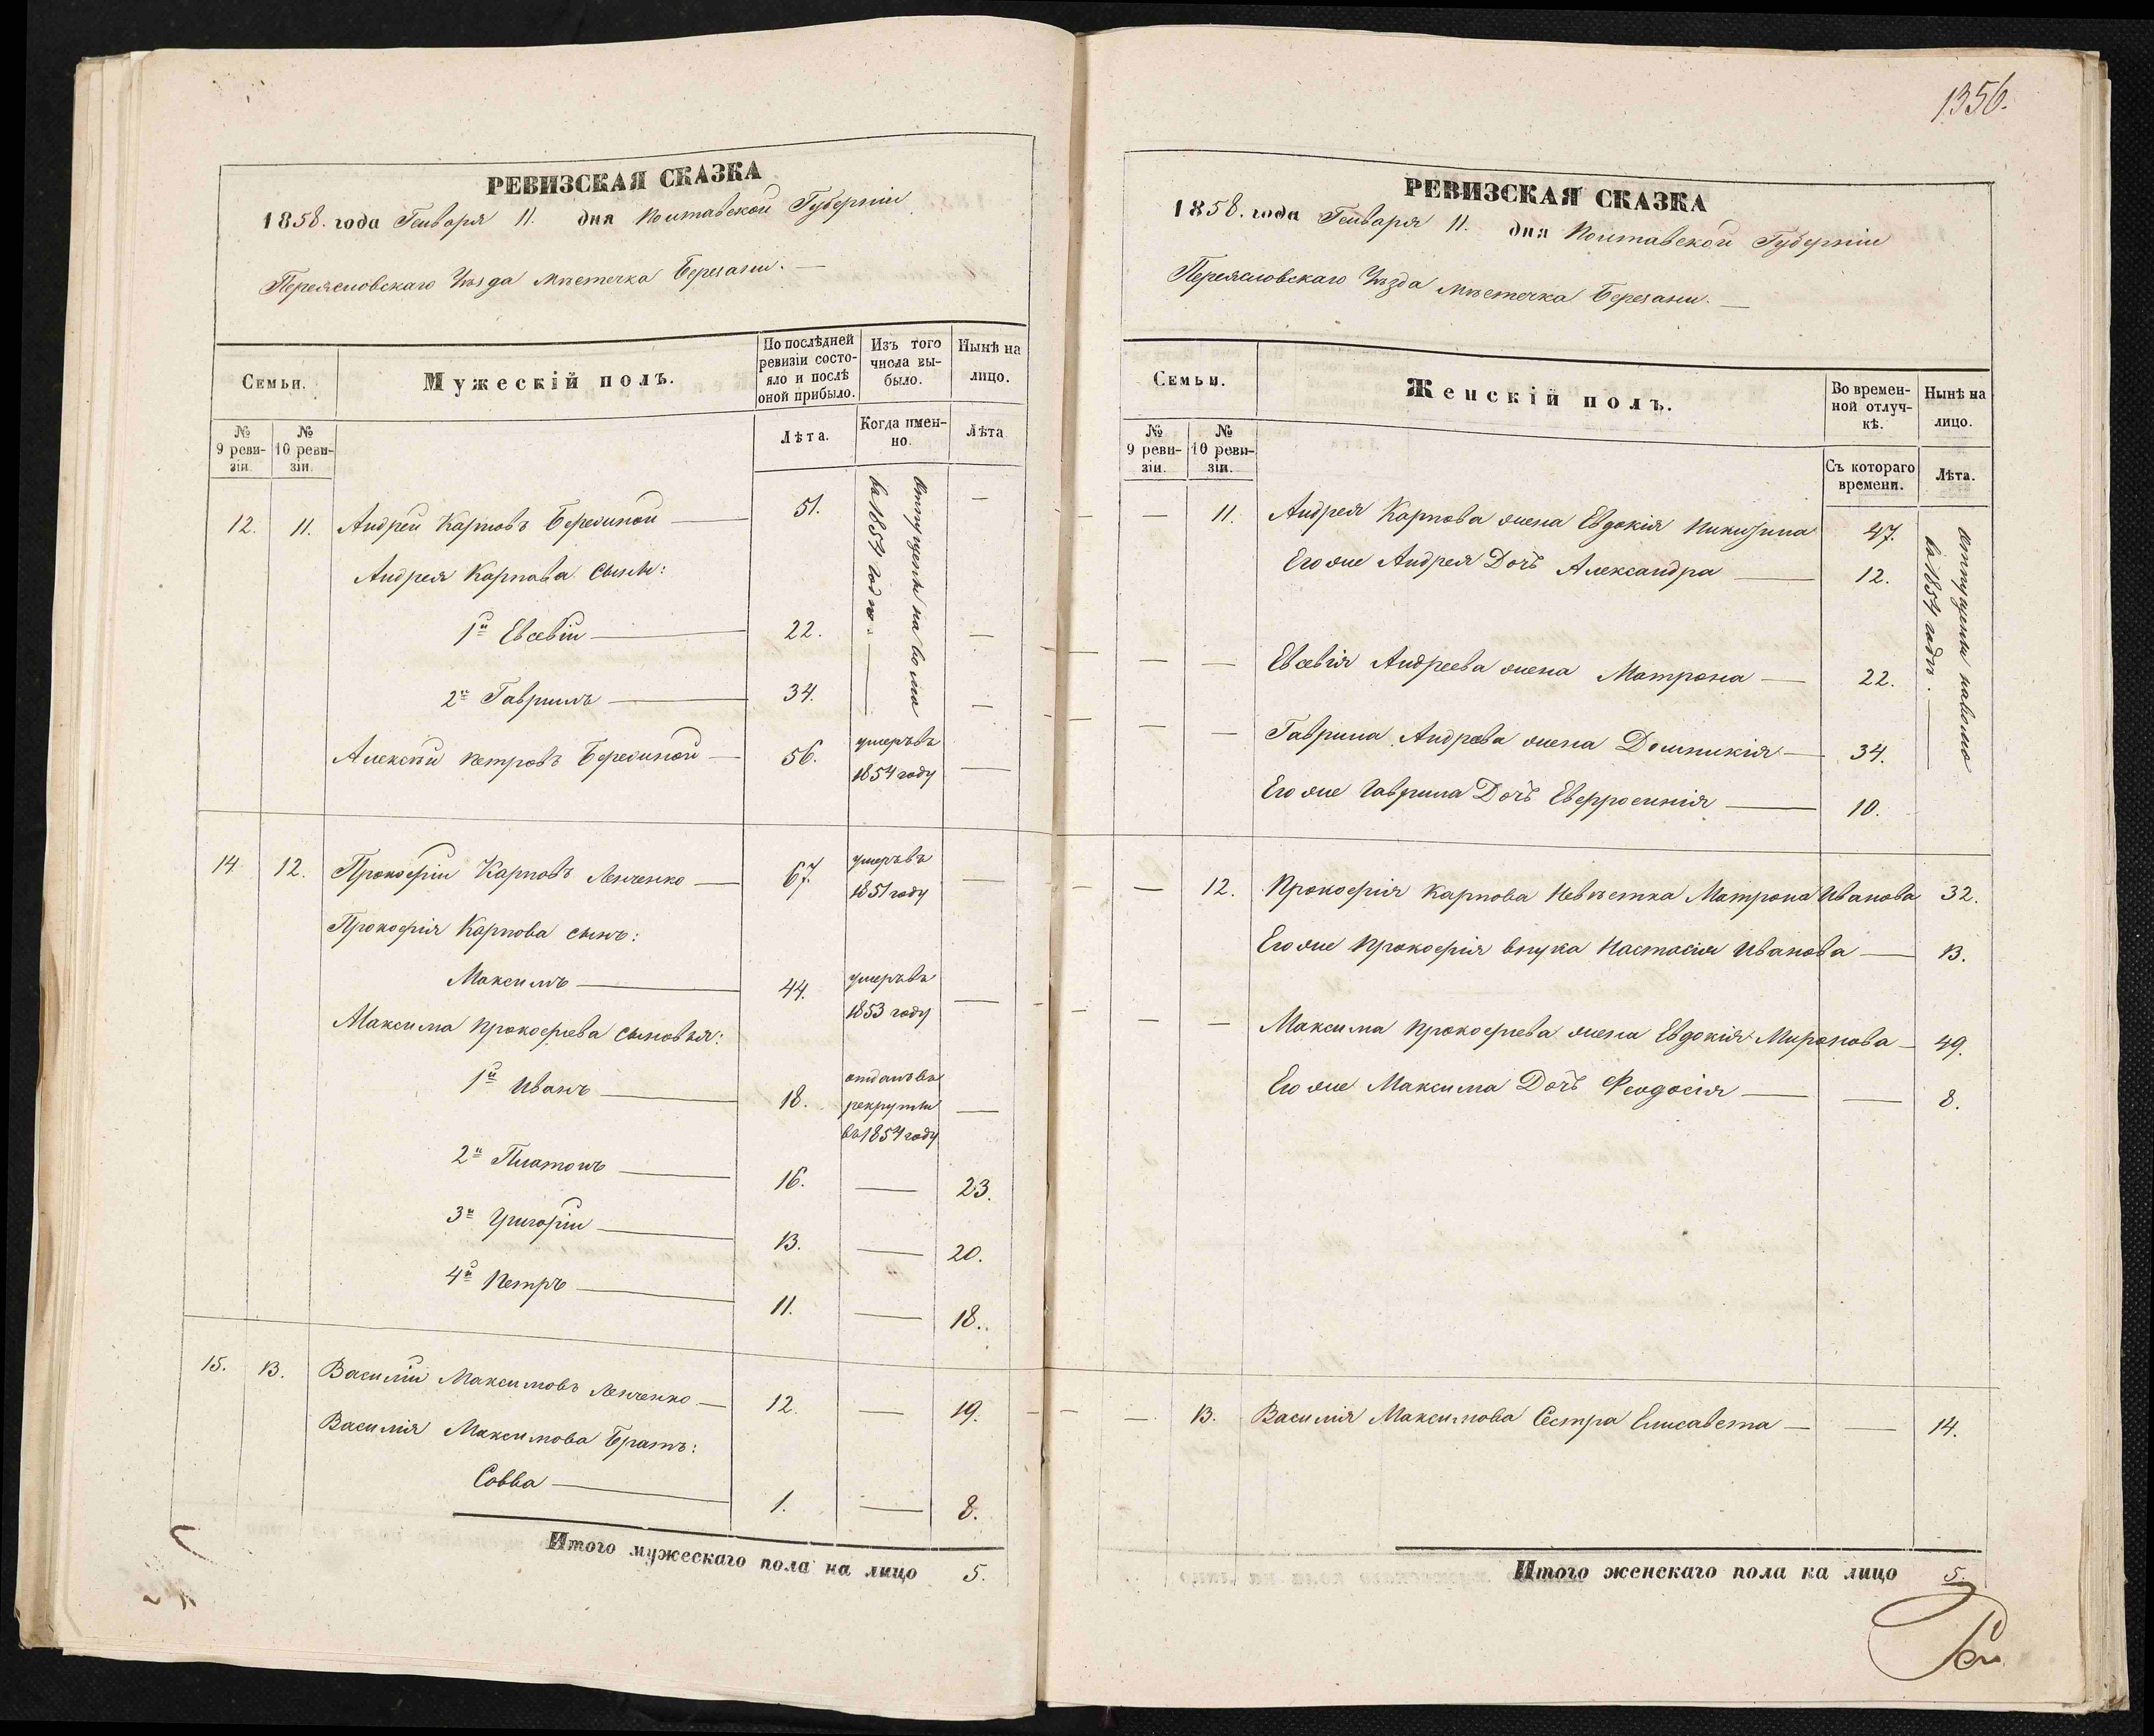 1356.
РЕВИЗСКАЯ СКАЗКА
1858. года Генваря 11. дня Полтавской Губерніи
Переясловскаго Уѣзда мѣстечка Березани.
Семьи.
Мужескій полъ.
По послѣдней ревизіи состояло и послѣ оной прибыло.
Изъ того числа выбыло.
Нынѣ на лицо.
№ 9 ревизіи.
№ 10 ревизіи.
Лѣта.
Когда именно.
Лѣта
12. 11. Андрей Карповъ Берединой — 51. —
Андрея Карпова сыны:
1й Евсевій — 22. —
2й Гаврилъ — 34. —
отпущены на волю
въ 1854 году. —
Алексѣй Петровъ Берединой — 56. умеръ въ 1854 году —
14 12. Прокофій Карповъ Ленченко — 67. умеръ въ 1851 году —
Прокофія Карпова сынъ:
Максимъ — 44. умеръ въ 1853 году —
Максима Прокофьева сыновья:
1й Иванъ — 18. отданъ въ рекруты въ 1854 году —
2й Платонъ — 16. — 23.
3й Григорій — 13. — 20.
4й Петръ — 11. — 18.
15. 13. Василій Максимовъ Ленченко — 12. — 19.
Василія Максимова Братъ:
Савва — 1. — 8.
Итого мужескаго пола на лицо 5.
РЕВИЗСКАЯ СКАЗКА
1858. года Генваря 11. дня Полтавской Губерніи
Переясловскаго Уѣзда мѣстечка Березани. —
Семьи.
Женскій полъ.
Во временной отлучкѣ.
Нынѣ на лицо.
№ 9 ревизіи.
№ 10 ревизіи.
Съ котораго времени.
Лѣта.
— 11. Андрея Карпова жена Евдокія Никитина 47.
Его же Андрея Дочь Александра — 12.
— — Евсевія Андреева жена Матрона — 22.
— — Гаврила Андреева жена Домникія — 34.
Его же Гаврила Дочь Евфросинія — 10.
отпущены на волю
въ 1854 году. —
— 12. Прокофія Карпова Невѣстка Матрона Иванова 32.
Его же Прокофія внука Настасія Иванова — 13.
— — Максима Прокофьева жена Евдокія Миронова — 49.
Его же Максима Дочь Феодосія — — 8.
— 13. Василія Максимова Сестра Елисавета — — 14.
Итого женскаго пола на лицо 5.